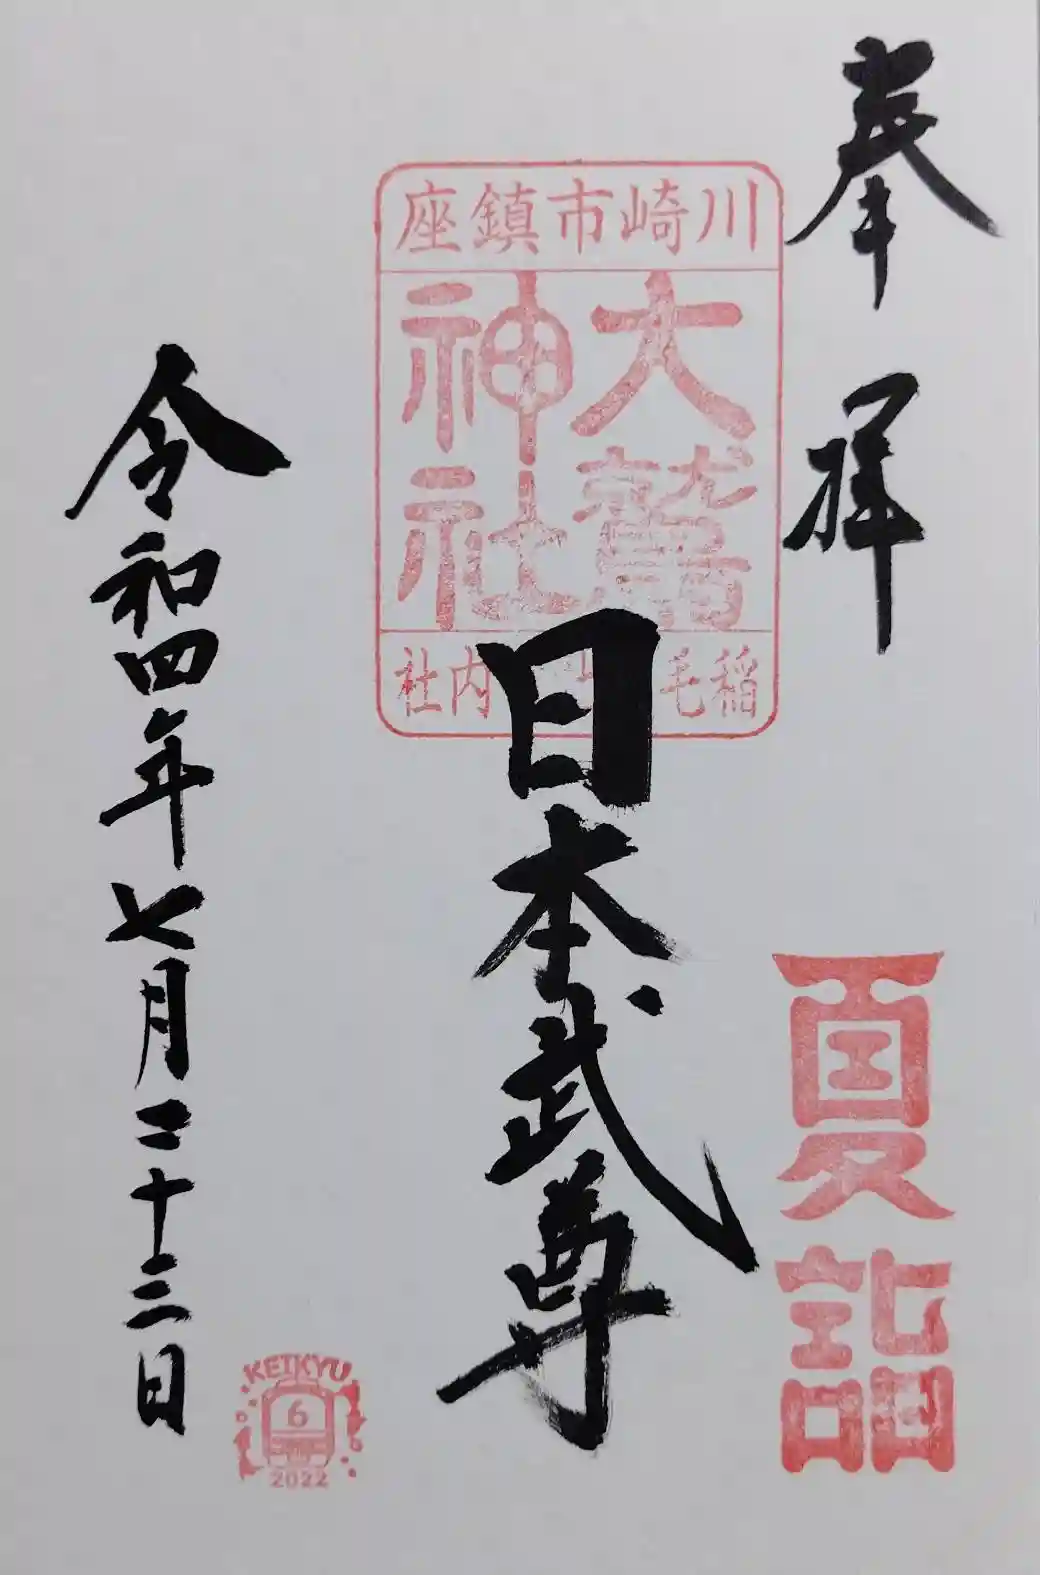 奉拝
夏詣
川崎市鎮座
大鷲
神社
稲毛
内社
日本武尊
令和四年七月二十三日
KEIKYU
6
2022